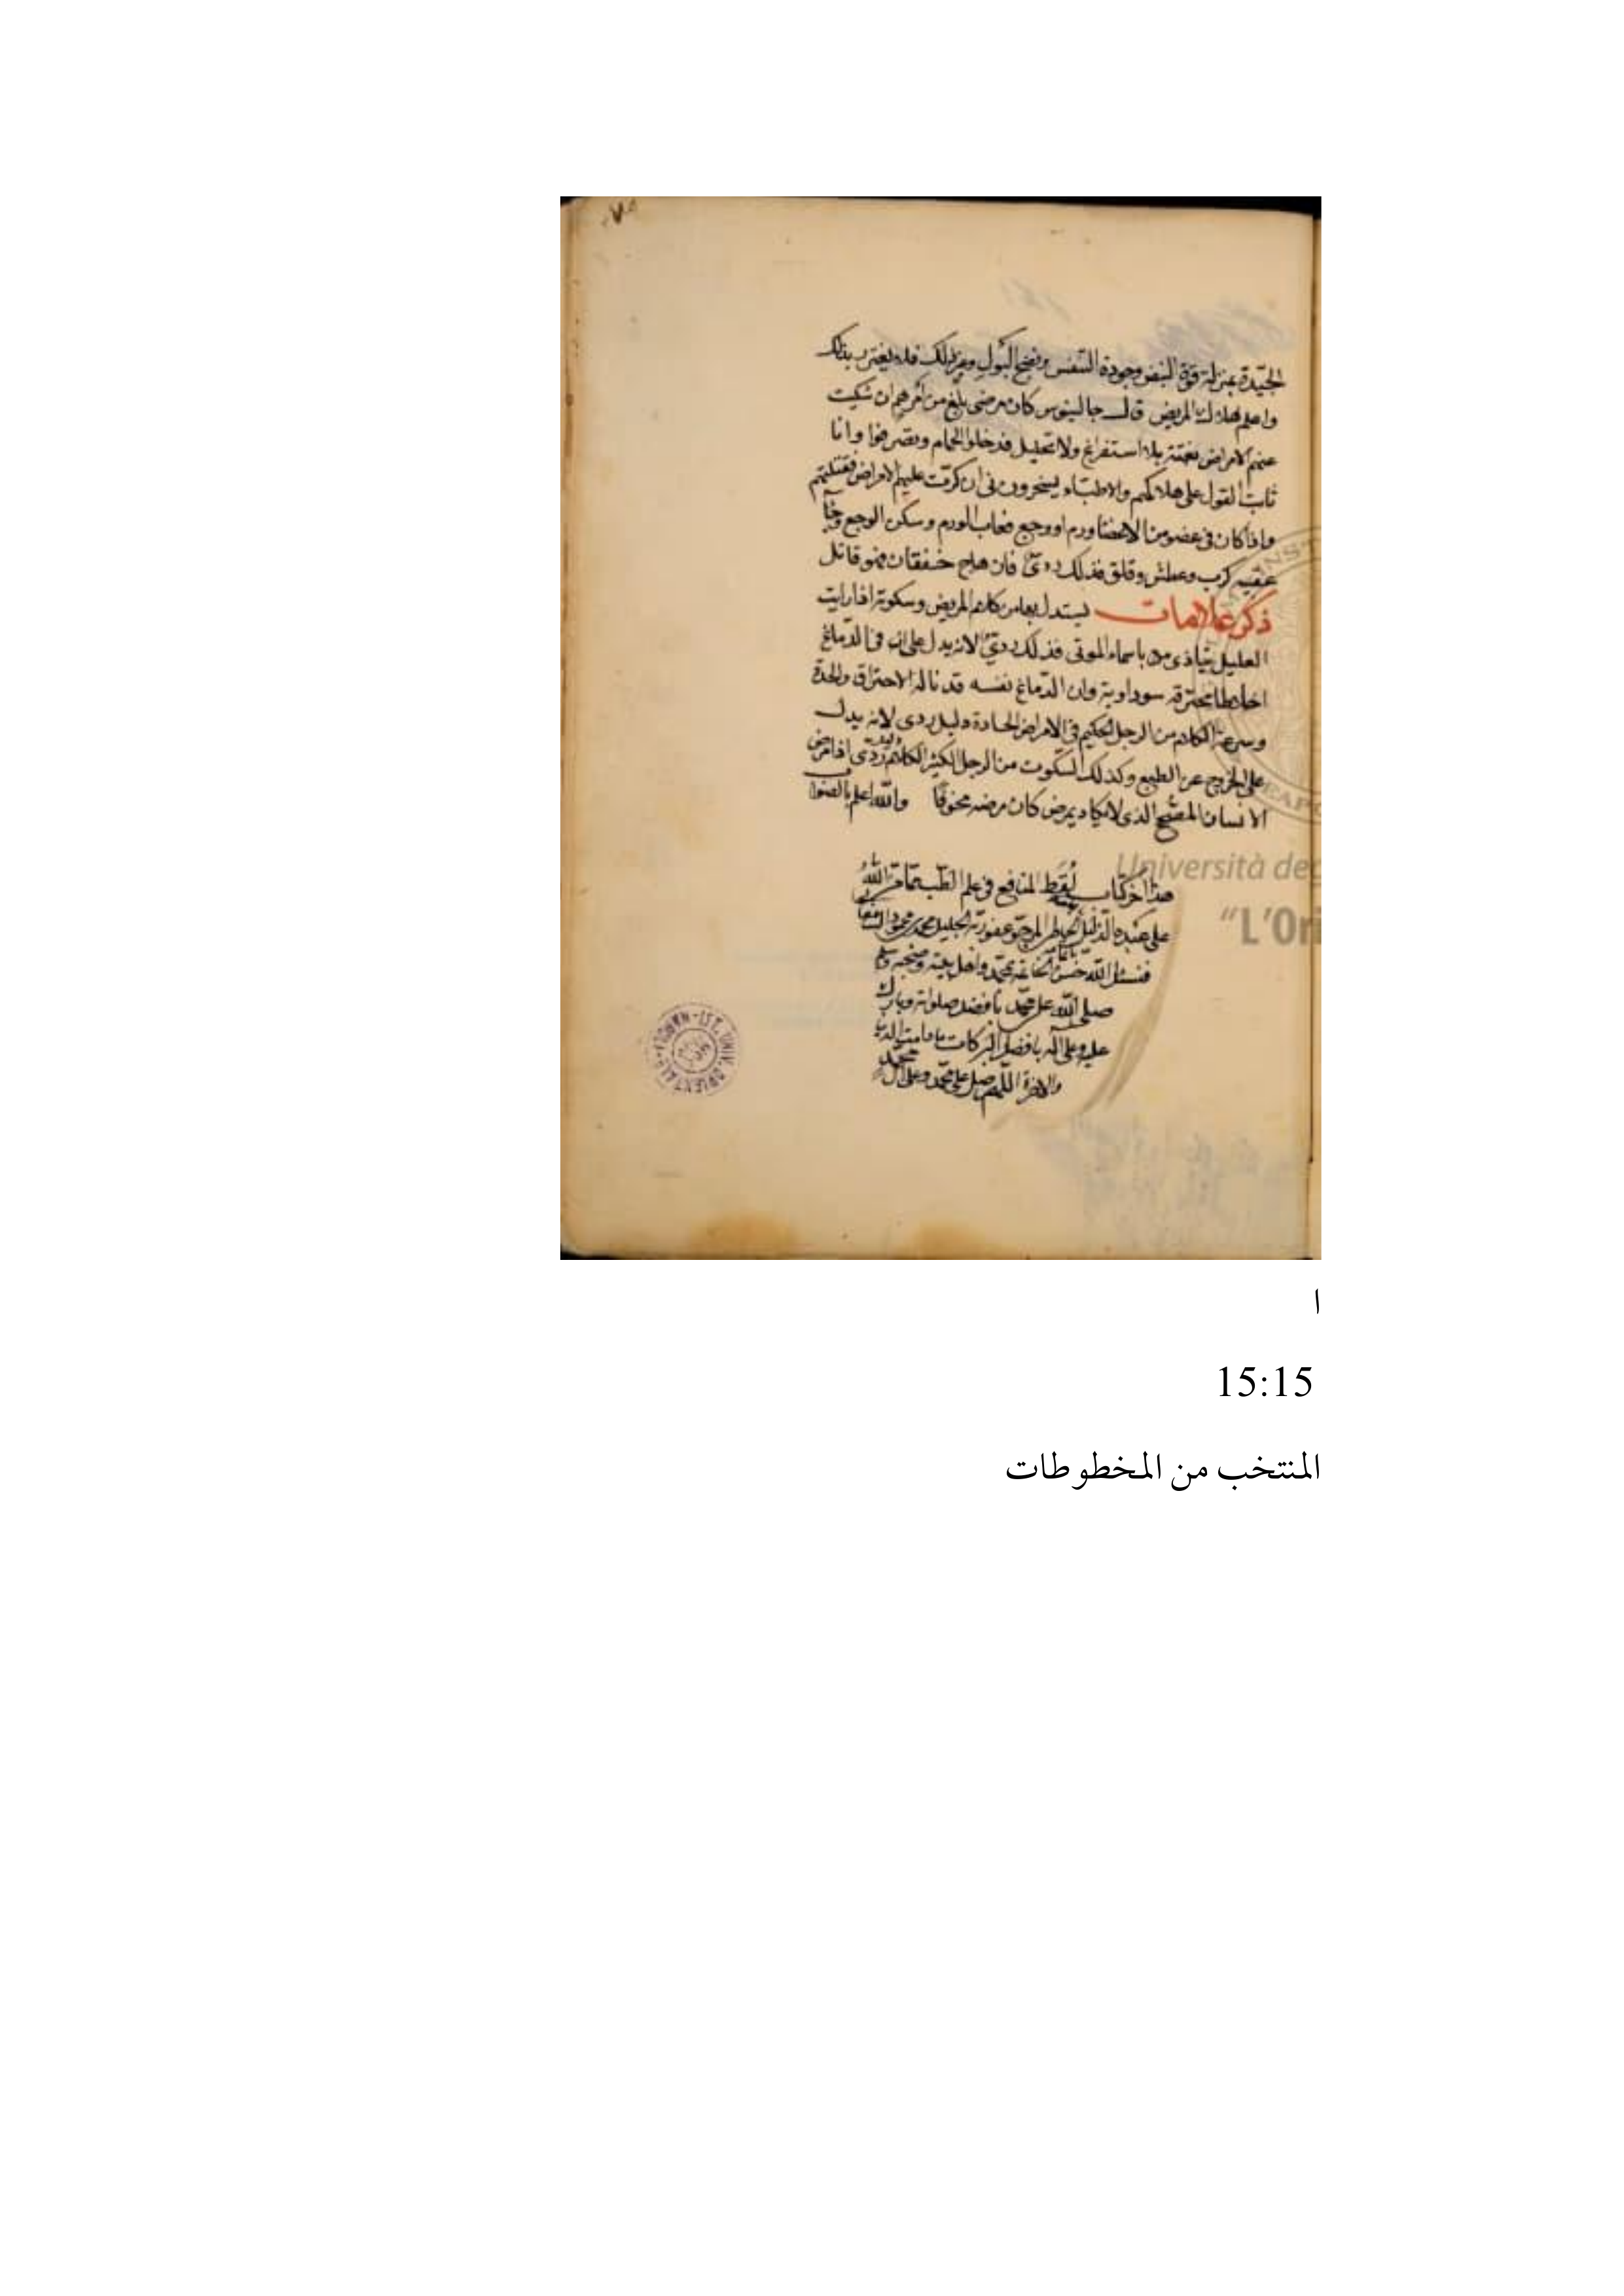 الجيدة بمنزلة قوة النبض وجودة التنفس ونضج البول وغير ذلك فلا يغتر بذلك
واعلم هلاك المريض قال جالينوس كان مرضى بلغ من امرهم ان سكنت
عنهم الامراض بغتة بلا استفراغ ولا تحليل فدخلوا الحمام وتصرفوا وانا
ثابت القول على هلاكهم والاطباء يسخرون بى ان كرت عليهم الامراض فقتلتهم
واذا كان فى عضو من الاعضا ورم او وجع فغاب الورم وسكن الوجع
عقيبه كرب وعطش وقلق فذلك ردئ فان هاج خفقان فهو قاتل
ذكر علامات يستدل بها من كلام المريض وسكوته اذا رايت
العليل يتاذى من باسماء الموتى فذلك ردئ لانه يدل على ان فى الدماغ
اخلاطا محترقه سوداوية وان الدماغ نفسه قد ناله الاحتراق والحدة
وسرعة الكلام من الرجل الحكيم فى الامراض الحادة دليل ردى لانه يدل
على الخروج عن الطبع وكذلك السكوت من الرجل الكثير الكلام ردى اذا مرض
الانسان المصحح الذى لا يكاد يمرض كان مرضه مخوفا والله اعلم بالصواب
هذا اخر كتاب لقط المنافع فى علم الطب مما من الله
على عبده الذليل المرجو عفو ربه الجليل محمد بن محمود
فنسئل الله حسن الخاتمة بمحمد واهل بيته وصحبه
صلى الله على محمد بافضل صلواته وبارك
عليه وعلى اله بافضل البركات ما دامت الدنيا
والاخرة اللهم صل على محمد وعلى ال محمد
Università de
"L'Ori
ا
15:15
المنتخب من المخطوطات